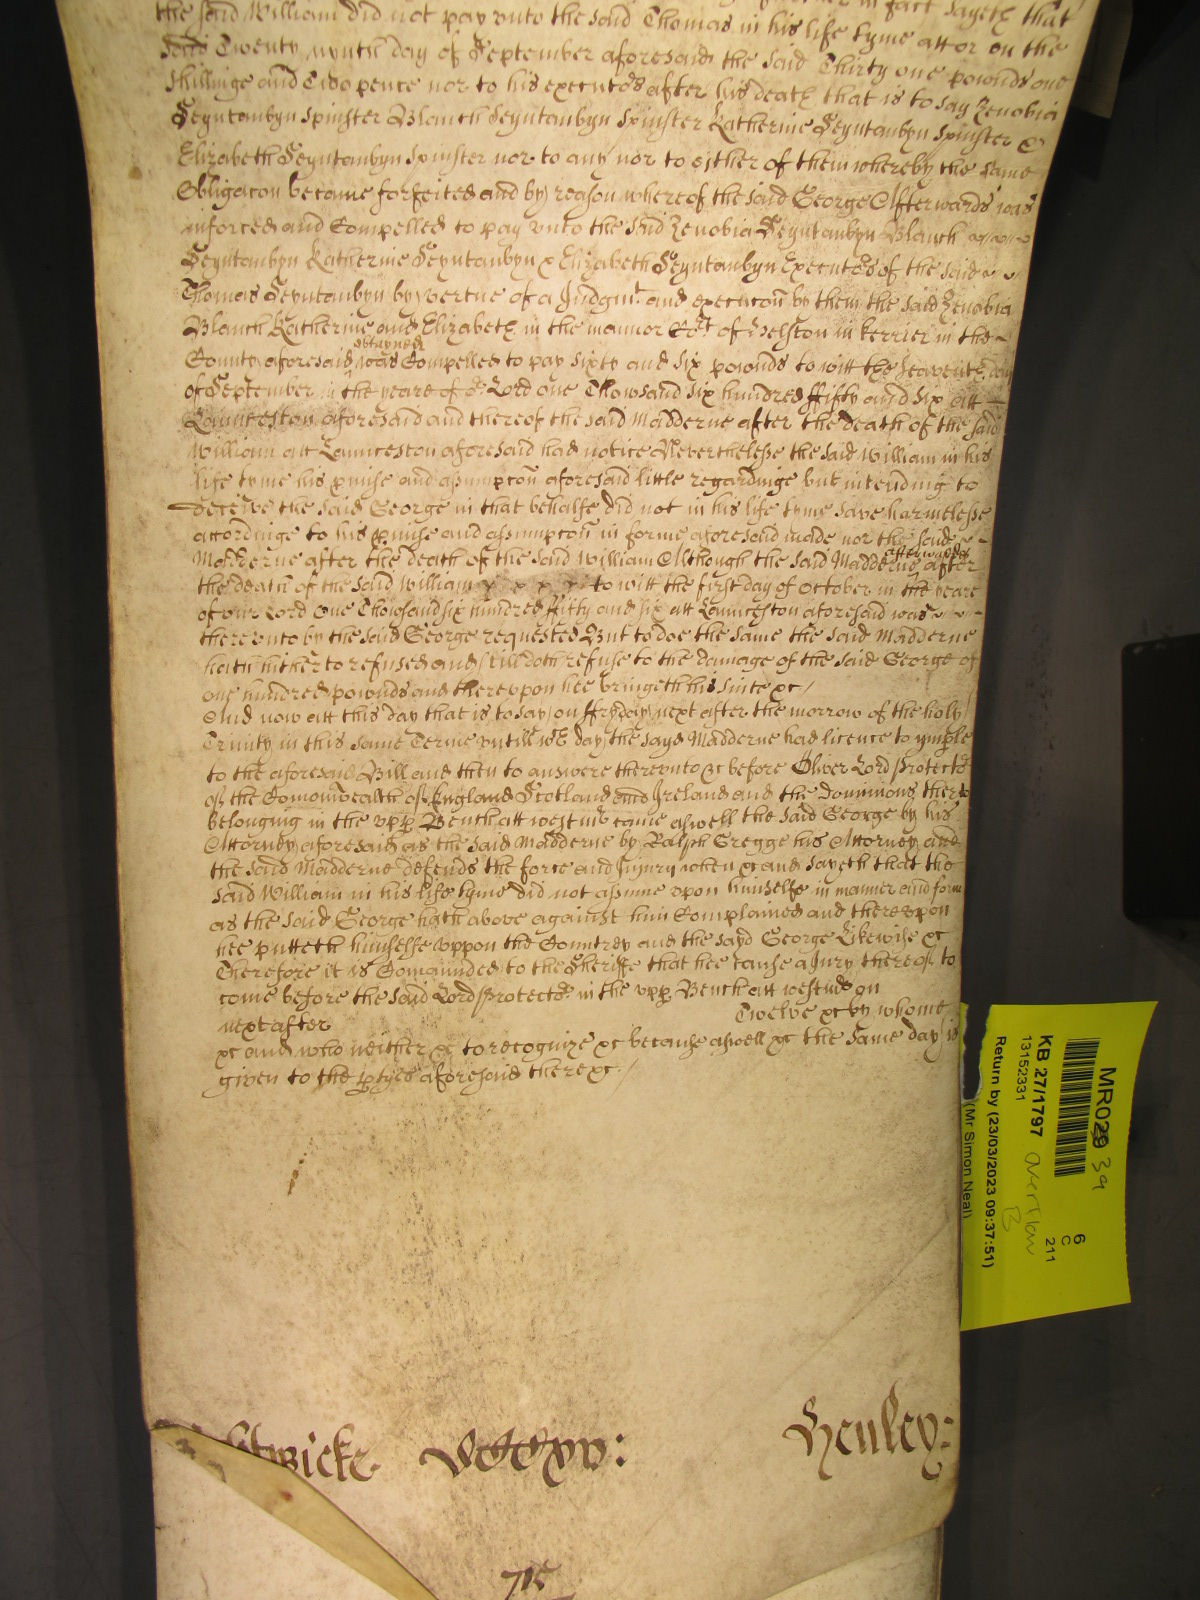 the said William did not pay unto the said Thomas in his life tyme att or on the
said Twenty nynth day of September aforesaid the said Thirty one pounds one
shillinge and Two pence nor to his executors after his death that is to say Zenobia
Seyntaubyn Spinster Blanch Seyntaubyn Spinster Katherine Seyntaubyn Spinster &
Elizabeth Seyntaubyn Spinster nor to any nor to either of them whereby the same
Obligacon became forfeited and by reason whereof the said George Afterwards was
inforced and Compelled to pay unto the said Zenobia Seyntaubyn Blanch
Seyntaubyn Katherine Seyntaubyn & Elizabeth Seyntaubyn Executors of the said
Thomas Seyntaubyn by vertue of a Judgmt and execucon by them the said Zenobia
Blanch Katherine and Elizabeth in the mannor Court of Helston in Kerrier in the
County aforesaid obtayned was Compelled to pay Sixty and Six pounds to witt the Seaventh day
of September in the yeare of or Lord One Thowsand Six hundred ffifty and Six att
Launceston aforesaid and thereof the said Madderne after the death of the said
William att Launceston aforesaid had notice Neverthelesse the said William in his
life tyme his pmise and assumpcon aforesaid little regardinge but intending to
deceive the said George in that behalfe did not in his life tyme save harmelesse
accordinge to his pmise and assumpcon in forme aforesaid made nor the said
Madderne after the death of the said William Although the said Madderne afterwards after
the death of the said William x x x x to witt the first day of October in the yeare
of our Lord One Thowsand six hundred ffifty and six att Launceston aforesaid was
thereunto by the said George requested But to doe the same the said Madderne
hath hitherto refused and still doth refuse to the damage of the said George of
one hundred pounds and thereupon hee bringeth his suite &c
And now att this day that is to say on ffryday next after the morrow of the holy
Trinity in this same Terme untill wch day the sayd Madderne had licence to imple
to the aforesaid Bill and then to answere thereunto &c before Oliver Lord Protector
of the Comonwealth of England Scotland and Ireland and the Dominions thereto
belonging in the upp Bench att westmr came aswell the said George by his
Attorney aforesaid as the said Madderne by Ralph Gregge his Attorney and
the said Madderne defends the force and Injury when &c and sayeth that the
said William in his life tyme did not assume upon himselfe in manner and forme
as the said George hath above against him Complained and thereupon
hee putteth himselfe uppon the Countrey and the sayd George Likewise &c
Therefore it is Comaunded to the Sheriffe that hee cause a Jury thereof to
come before the said Lord Protector in the upp Bench att westmr on
next after Twelve &c by whome
&c and who neither &c to recognize &c because aswell &c the same day is
given to the ptyes aforesaid there &c
Henley:
715
MR029 39
KB 27/1797
13152331
Return by (23/03/2023 09:37:51)
(Mr Simon Neal)
overflow
B
6
C
211